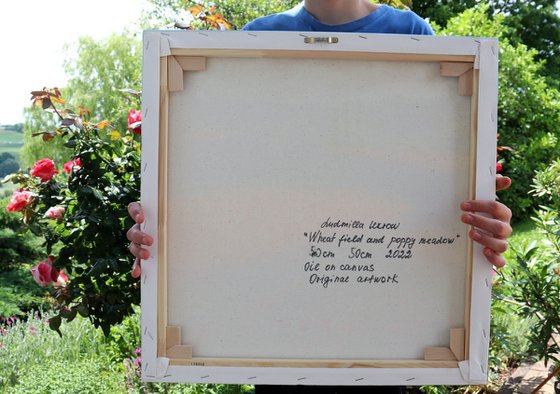 Ludmilla Ukrow
"Wheat field and poppy meadow"
50cm 50cm 2022
Oil on canvas
Original artwork